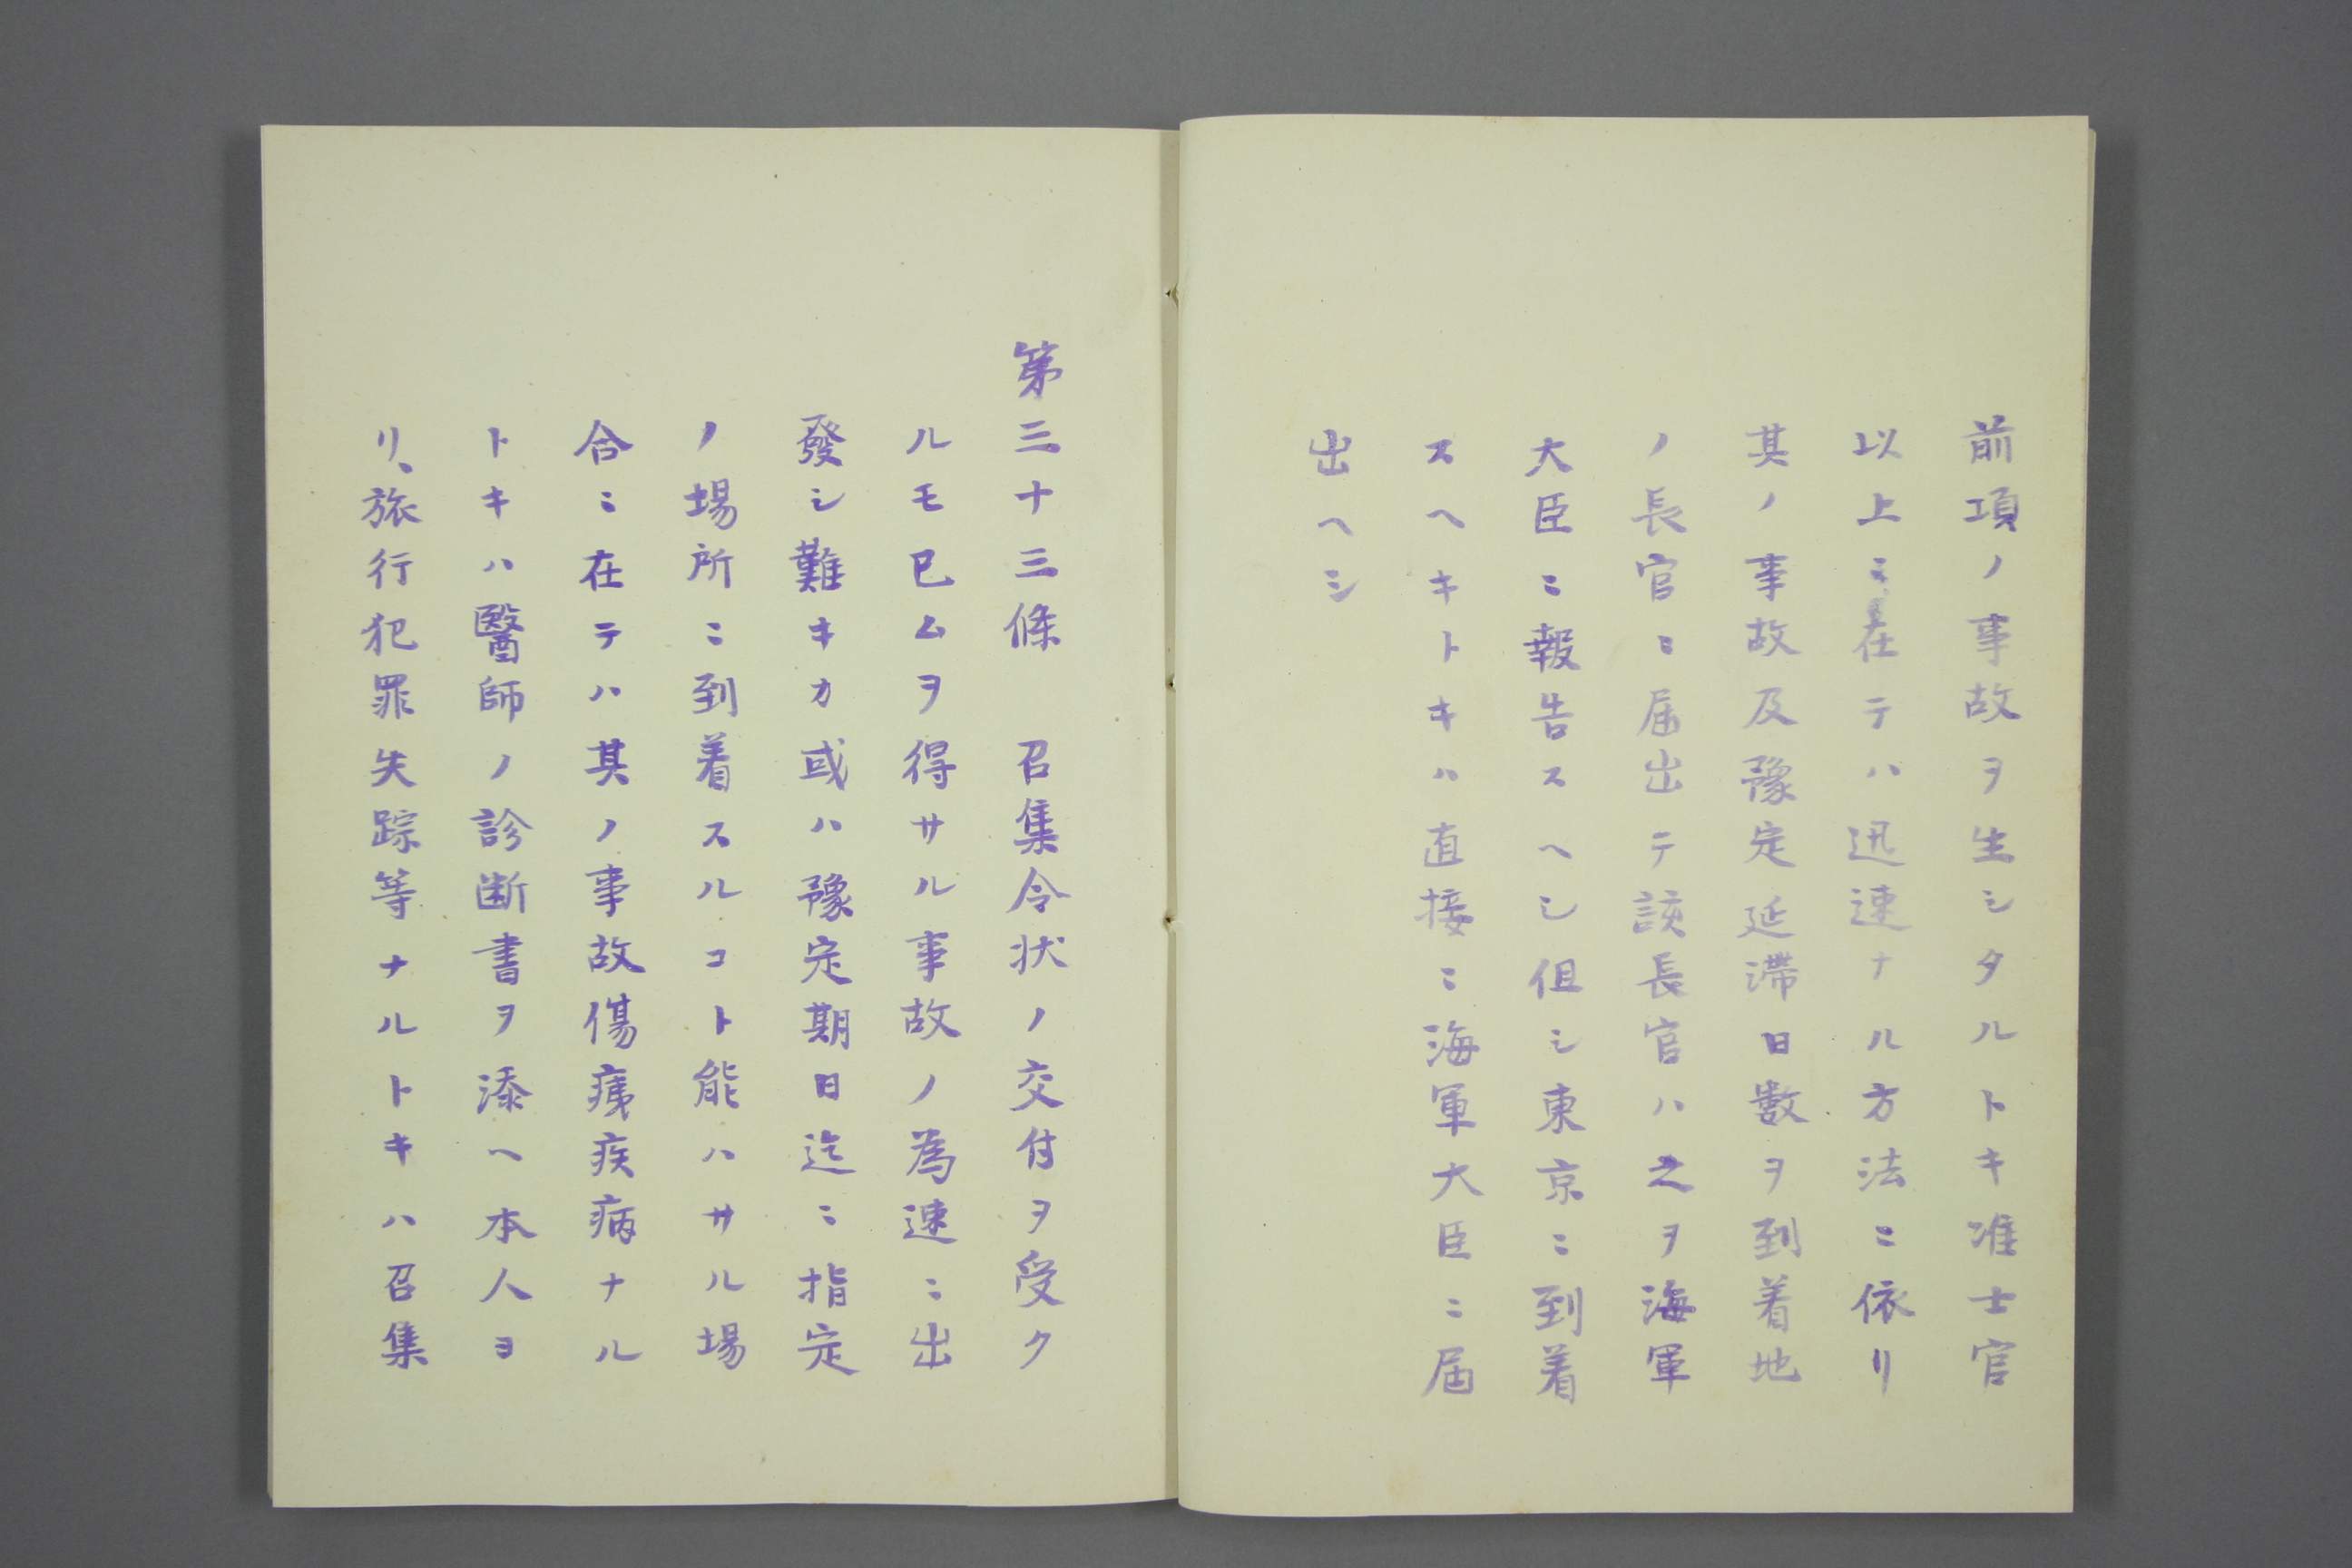 前項ノ事故ヲ生シタルトキ准士官
以上ニ在テハ迅速ナル方法ニ依リ
其ノ事故及豫定延滯日数ヲ到着地
ノ長官ニ届出テ該長官ハ之ヲ海軍
大臣ニ報告スヘシ但シ東京ニ到着
スヘキトキハ直接ニ海軍大臣ニ届
出ヘシ
第三十三條　召集令状ノ交付ヲ受ク
ルモ已ムヲ得サル事故ノ為速ニ出
發シ難キカ或ハ豫定期日迄ニ指定
ノ場所ニ到着スルコト能ハサル場
合ニ在テハ其ノ事故傷痍疾病ナル
トキハ醫師ノ診断書ヲ添ヘ本人ヨ
リ、旅行犯罪失踪等ナルトキハ召集